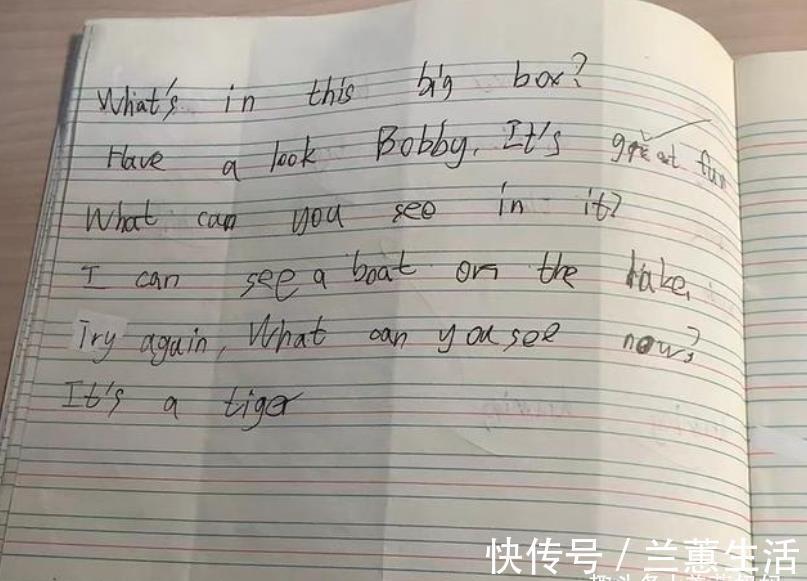 What's in this big box?
Have a look Bobby. It's great fun
What can you see in it?
I can see a boat on the lake.
Try again, What can you see now?
It's a tiger
快传号 / 兰蕙生活